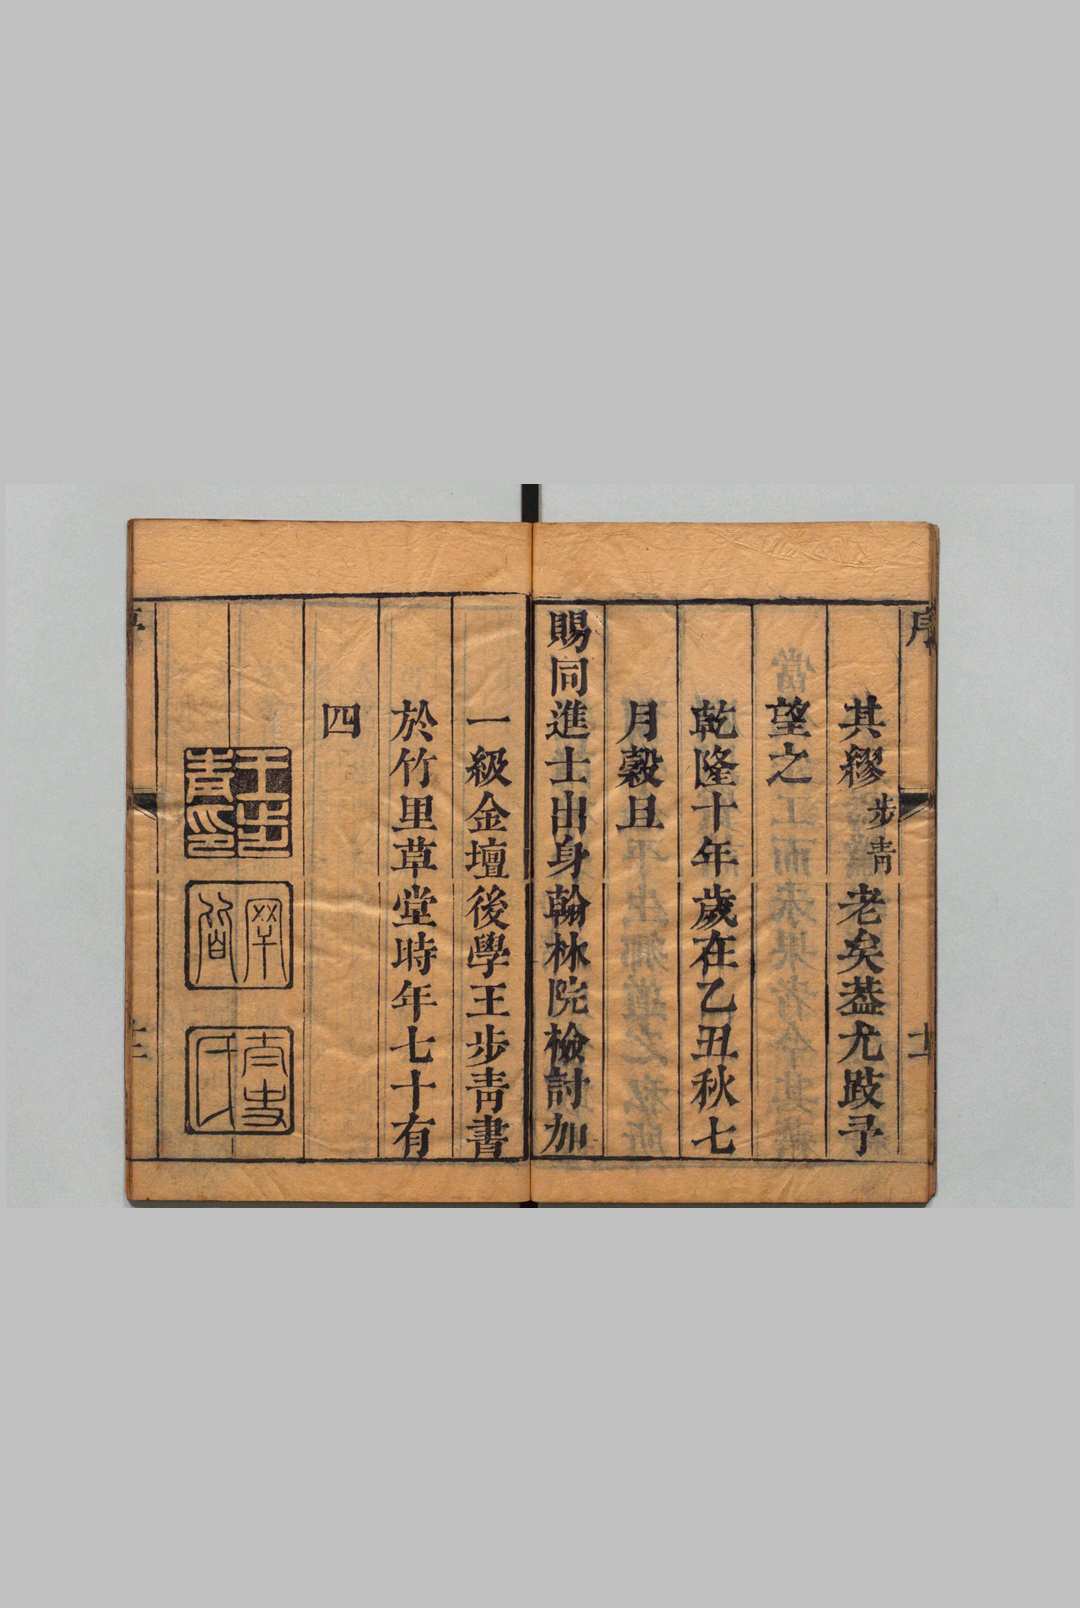 其繆步青老矣葢尤跂予
望之
乾隆十年歲在乙丑秋七
月穀旦
賜同進士出身翰林院檢討加
一級金壇後學王步青書
於竹里草堂時年七十有
四
王步青印
罕皆
太史氏
序